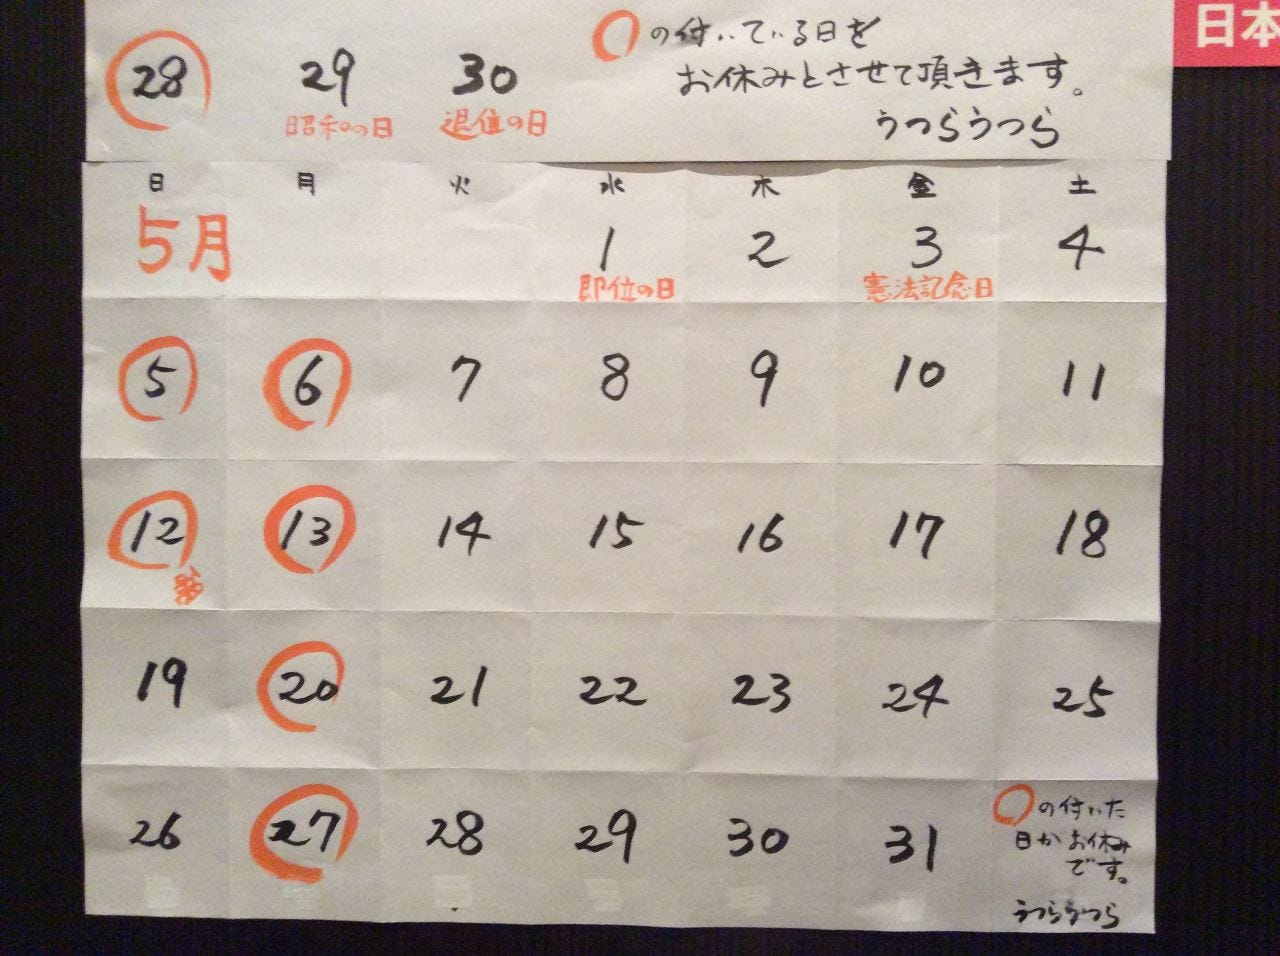 日本
28 29 30
昭和の日 退位の日
○の付いている日を
お休みとさせて頂きます。
うつらうつら
日 月 火 水 木 金 土
5月 1 2 3 4
即位の日 憲法記念日
5 6 7 8 9 10 11
12 13 14 15 16 17 18
19 20 21 22 23 24 25
26 27 28 29 30 31
○の付いた
日がお休み
です。
うつらうつら